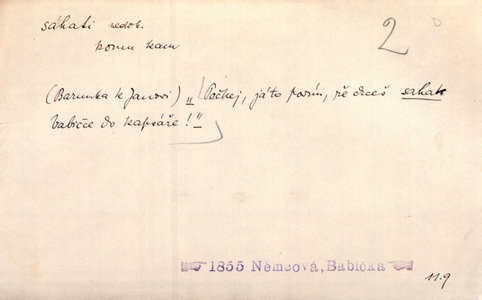 sahati nedok.
komu kam
2
D
(Barunka k Janovi) „Počkej, já to povím, že chceš sahat
babičce do kapsáře!"
1855 Němcová, Babička
119